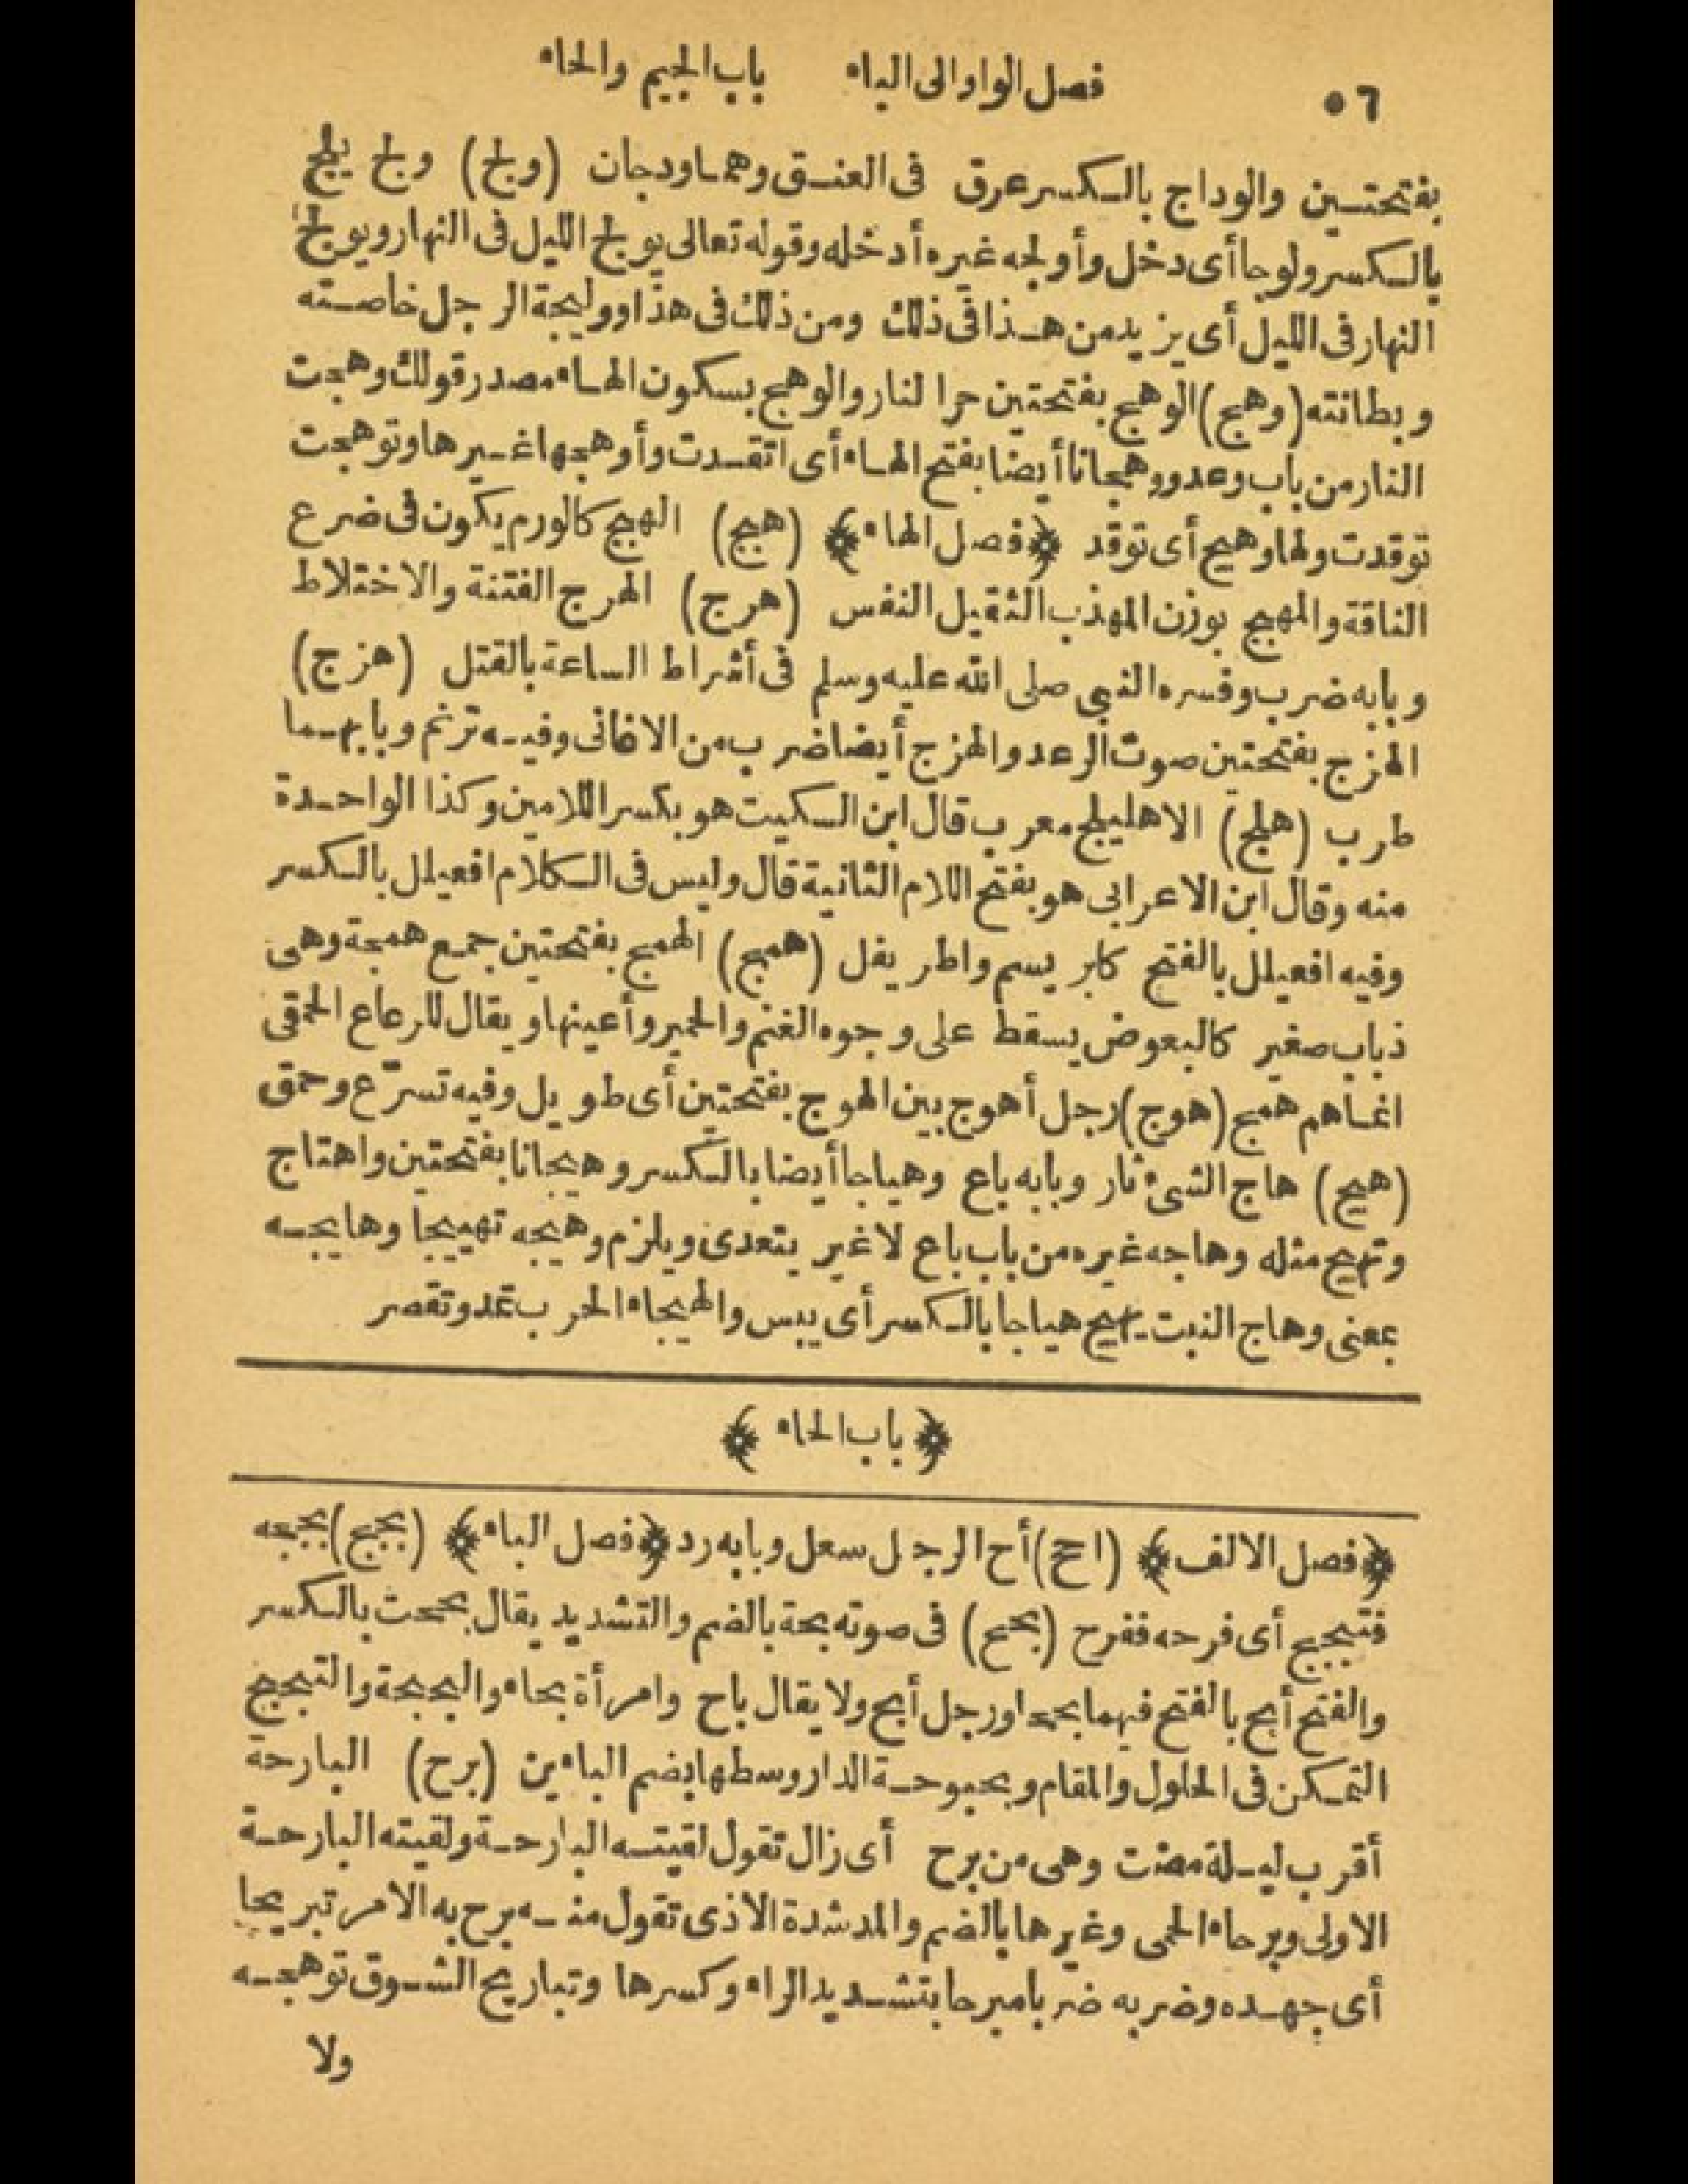 ٥٦ فصل الواو الى الياء باب الجيم والحاء
بفتحتين والوداج بالكسر عرق فى العنق وهما ودجان (ولج) ولج يلج
بالكسر ولوجا أى دخل وأولجه غيره أدخله وقوله تعالى يولج الليل فى النهار ويولج
النهار فى الليل أى يزيد من هذا فى ذلك ومن ذلك فى هذا ووليجة الرجل خاصته
وبطانته (وهج) الوهج بفتحتين حر النار والوهج بسكون الهاء مصدر قولك وهجت
النار من باب وعد ووهجانا أيضا بفتح الهاء أى اتقدت وأوهجها غيرها وتوهجت
توقدت ولها وهيج أى توقد ﴿فصل الهاء﴾ (هبج) الهبج كالورم يكون فى ضرع
الناقة والمهبج بوزن المهذب الثقيل النفس (هرج) الهرج الفتنة والاختلاط
وبابه ضرب وفسره النبى صلى الله عليه وسلم فى أشراط الساعة بالقتل (هزج)
الهزج بفتحتين صوت الرعد والهزج أيضا ضرب من الاغانى وفيه ترنم وبابهما
طرب (هلج) الاهليلج معرب قال ابن السكيت هو بكسر اللامين وكذا الواحدة
منه وقال ابن الاعرابى هو بفتح اللام الثانية قال وليس فى الكلام افعيلل بالكسر
وفيه افعيلل بالفتح كابريسم واطريفل (همج) الهمج بفتحتين جمع همجة وهى
ذباب صغير كالبعوض يسقط على وجوه الغنم والحمير وأعينها ويقال للرعاع الحمقى
انما هم همج (هوج) رجل أهوج بين الهوج بفتحتين أى طويل وفيه تسرّع وحمق
(هيج) هاج الشئ ثار وبابه باع وهياجا أيضا بالكسر وهيجانا بفتحتين واهتاج
وتهيج مثله وهاجه غيره من باب باع لا غير يتعدى ويلزم وهيجه تهييجا وهايجه
بمعنى وهاج النبت يهيج هياجا بالكسر أى يبس والهيجاء الحرب تمد وتقصر
﴿باب الحاء﴾
﴿فصل الالف﴾ (احح) أح الرجل سعل وبابه رد ﴿فصل الباء﴾ (بجح) بجحه
فتبجح أى فرحه ففرح (بحح) فى صوته بحة بالضم والتشديد يقال بححت بالكسر
والفتح أبح بالفتح فيهما بححا ورجل أبح ولا يقال باح وامرأة بحاء والبحبحة والتبحبح
التمكن فى الحلول والمقام وبحبوحة الدار وسطها بضم الباءين (برح) البارحة
أقرب ليلة مضت وهى من برح أى زال تقول لقيته البارحة ولقيته البارحة
الاولى وبرحاء الحمى وغيرها بالضم والمد شدة الاذى تقول منه برح به الامر تبريحا
أى جهده وضربه ضربا مبرحا بتشديد الراء وكسرها وتباريح الشوق توهجه
ولا